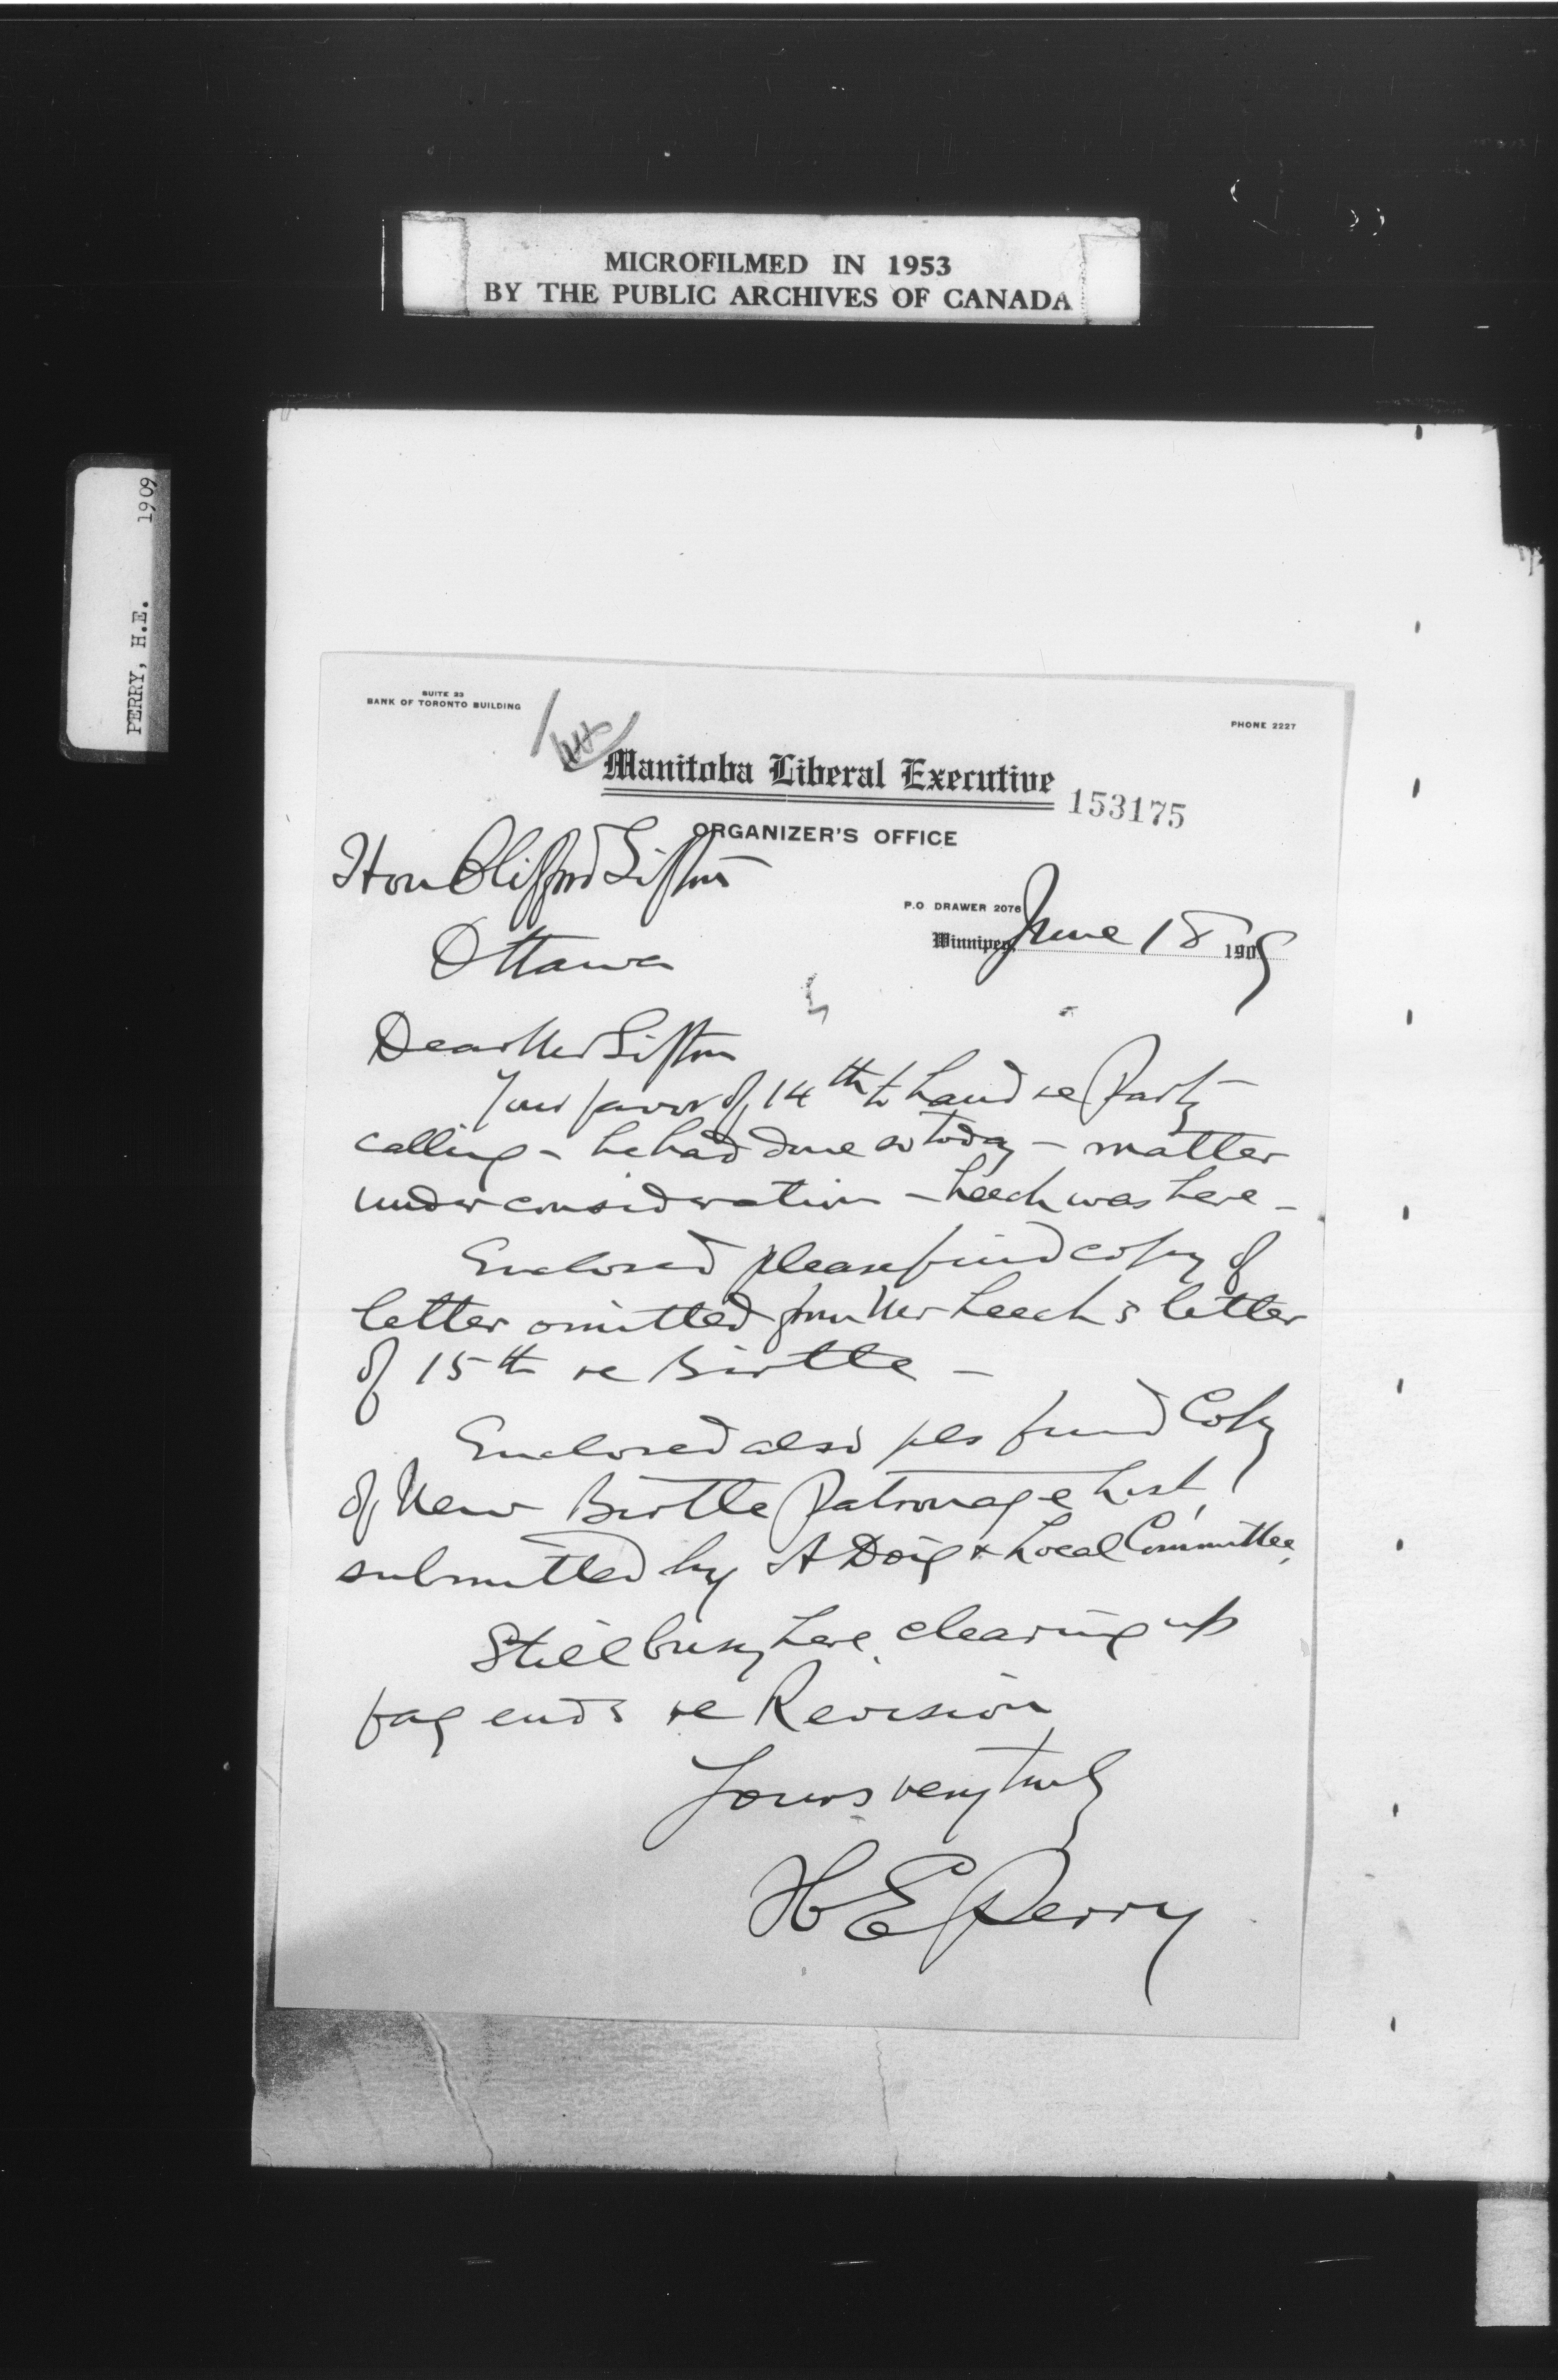 MICROFILMED IN 1953
BY THE PUBLIC ARCHIVES OF CANADA
PERRY, H.E. 1909
SUITE 23
BANK OF TORONTO BUILDING
PHONE 2227
Manitoba Liberal Executive
153175
ORGANIZER'S OFFICE
Hon Clifford Sifton
P.O DRAWER 2076
Winnipeg, June 18 1909
Ottawa
Dear Mr Sifton
Your favor of 14th to hand re Party
calling - he had done so today - matter
under consideration - Leech was here -
Enclosed please find copy of
letter omitted from Mr Leech's letter
of 15th re Birtle -
Enclosed also pls find Copy
of New Birtle Patronage List,
submitted by A Doig & Local Committee,
Still busy here clearing up
fag ends re Revision
Yours very truly
H E Perry